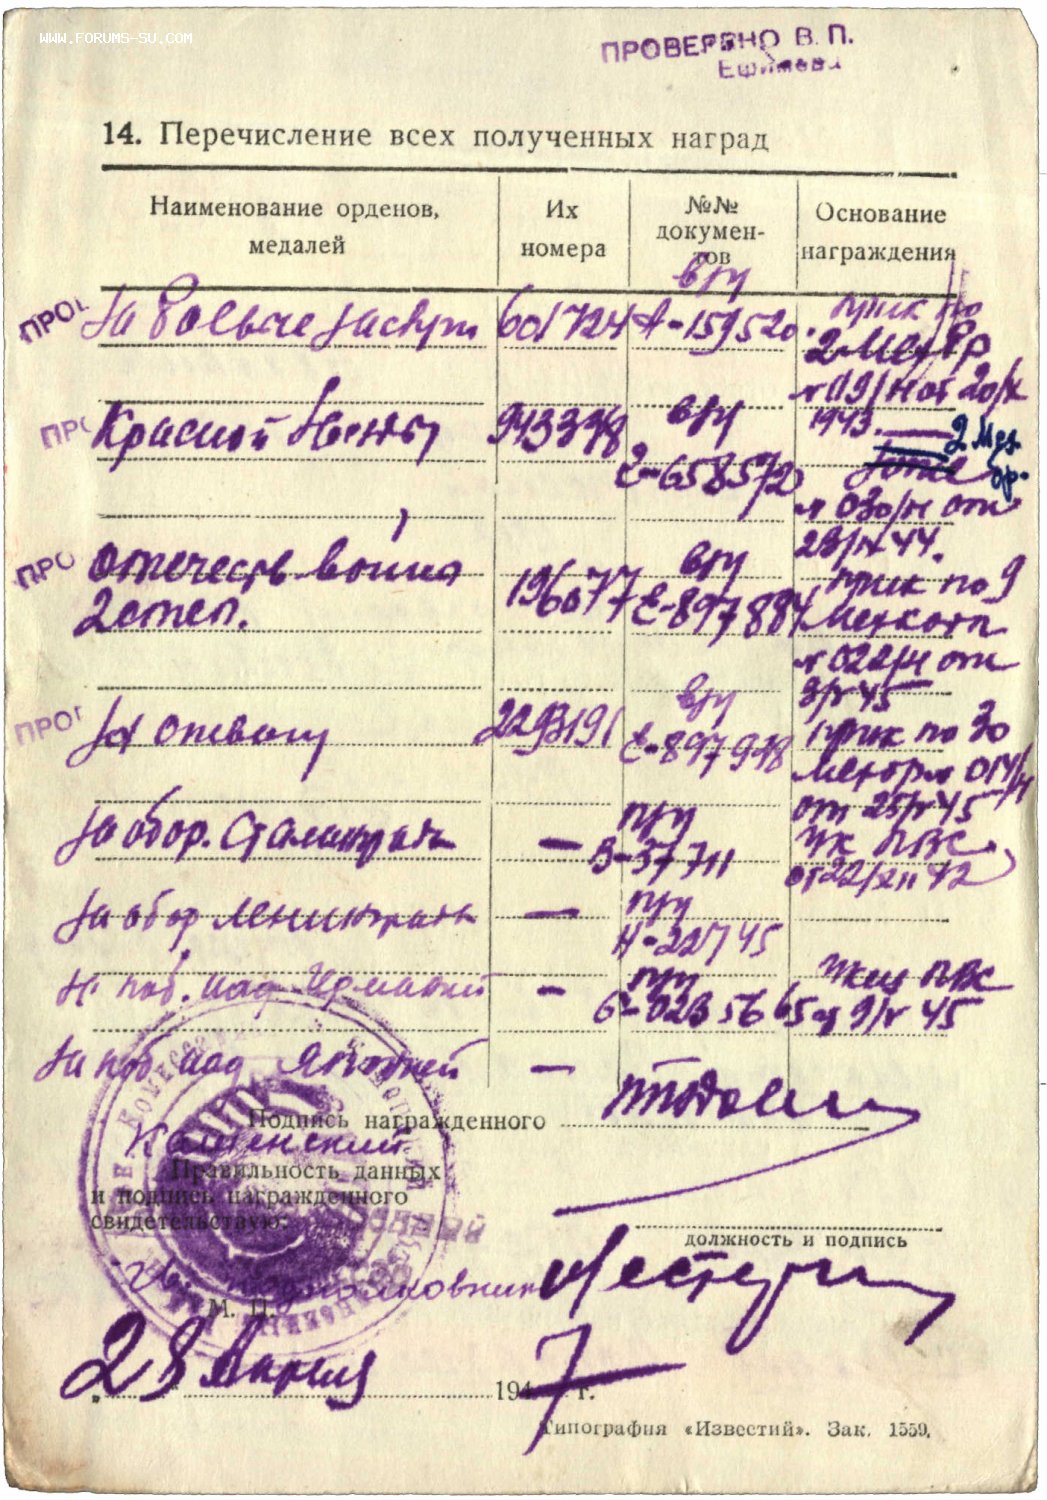 WWW.FORUMS-SU.COM
ПРОВЕРЕНО В. П.
Ефимова
14. Перечисление всех полученных наград
Наименование орденов, медалей
Их номера
№№ документов
Основание награждения
вру
За боевые заслуги 601724 А-159520 прик по
2 Мех бр
№ 019/н от 20/X
1943.
Красной Звезды 943378 вру
Е-658572
2 Мех. бр.
тоже
№ 030/н от
23/IV 44.
Отечеств войны
2 степ. 196077 вру
Е-897884 прик по 9
Мехкорп
№ 022/н от
За отвагу 2293191 вру
Е-897978 прик по 30
014/н
от 25/V 45
За обор. Сталинграда — пру
В-37711 Ук ПВС
от 22/XII 42
За обор Ленинграда — пру
Н-22745
За поб. над Германией — пру
Указ ПВС
от 9/V 45
За поб. над Японией —
Подпись награжденного
Правильность данных
и подпись награжденного
свидетельствую:
должность и подпись
подполковник
М. П.
28 Апреля 1947 г.
Типография «Известий». Зак. 1559.